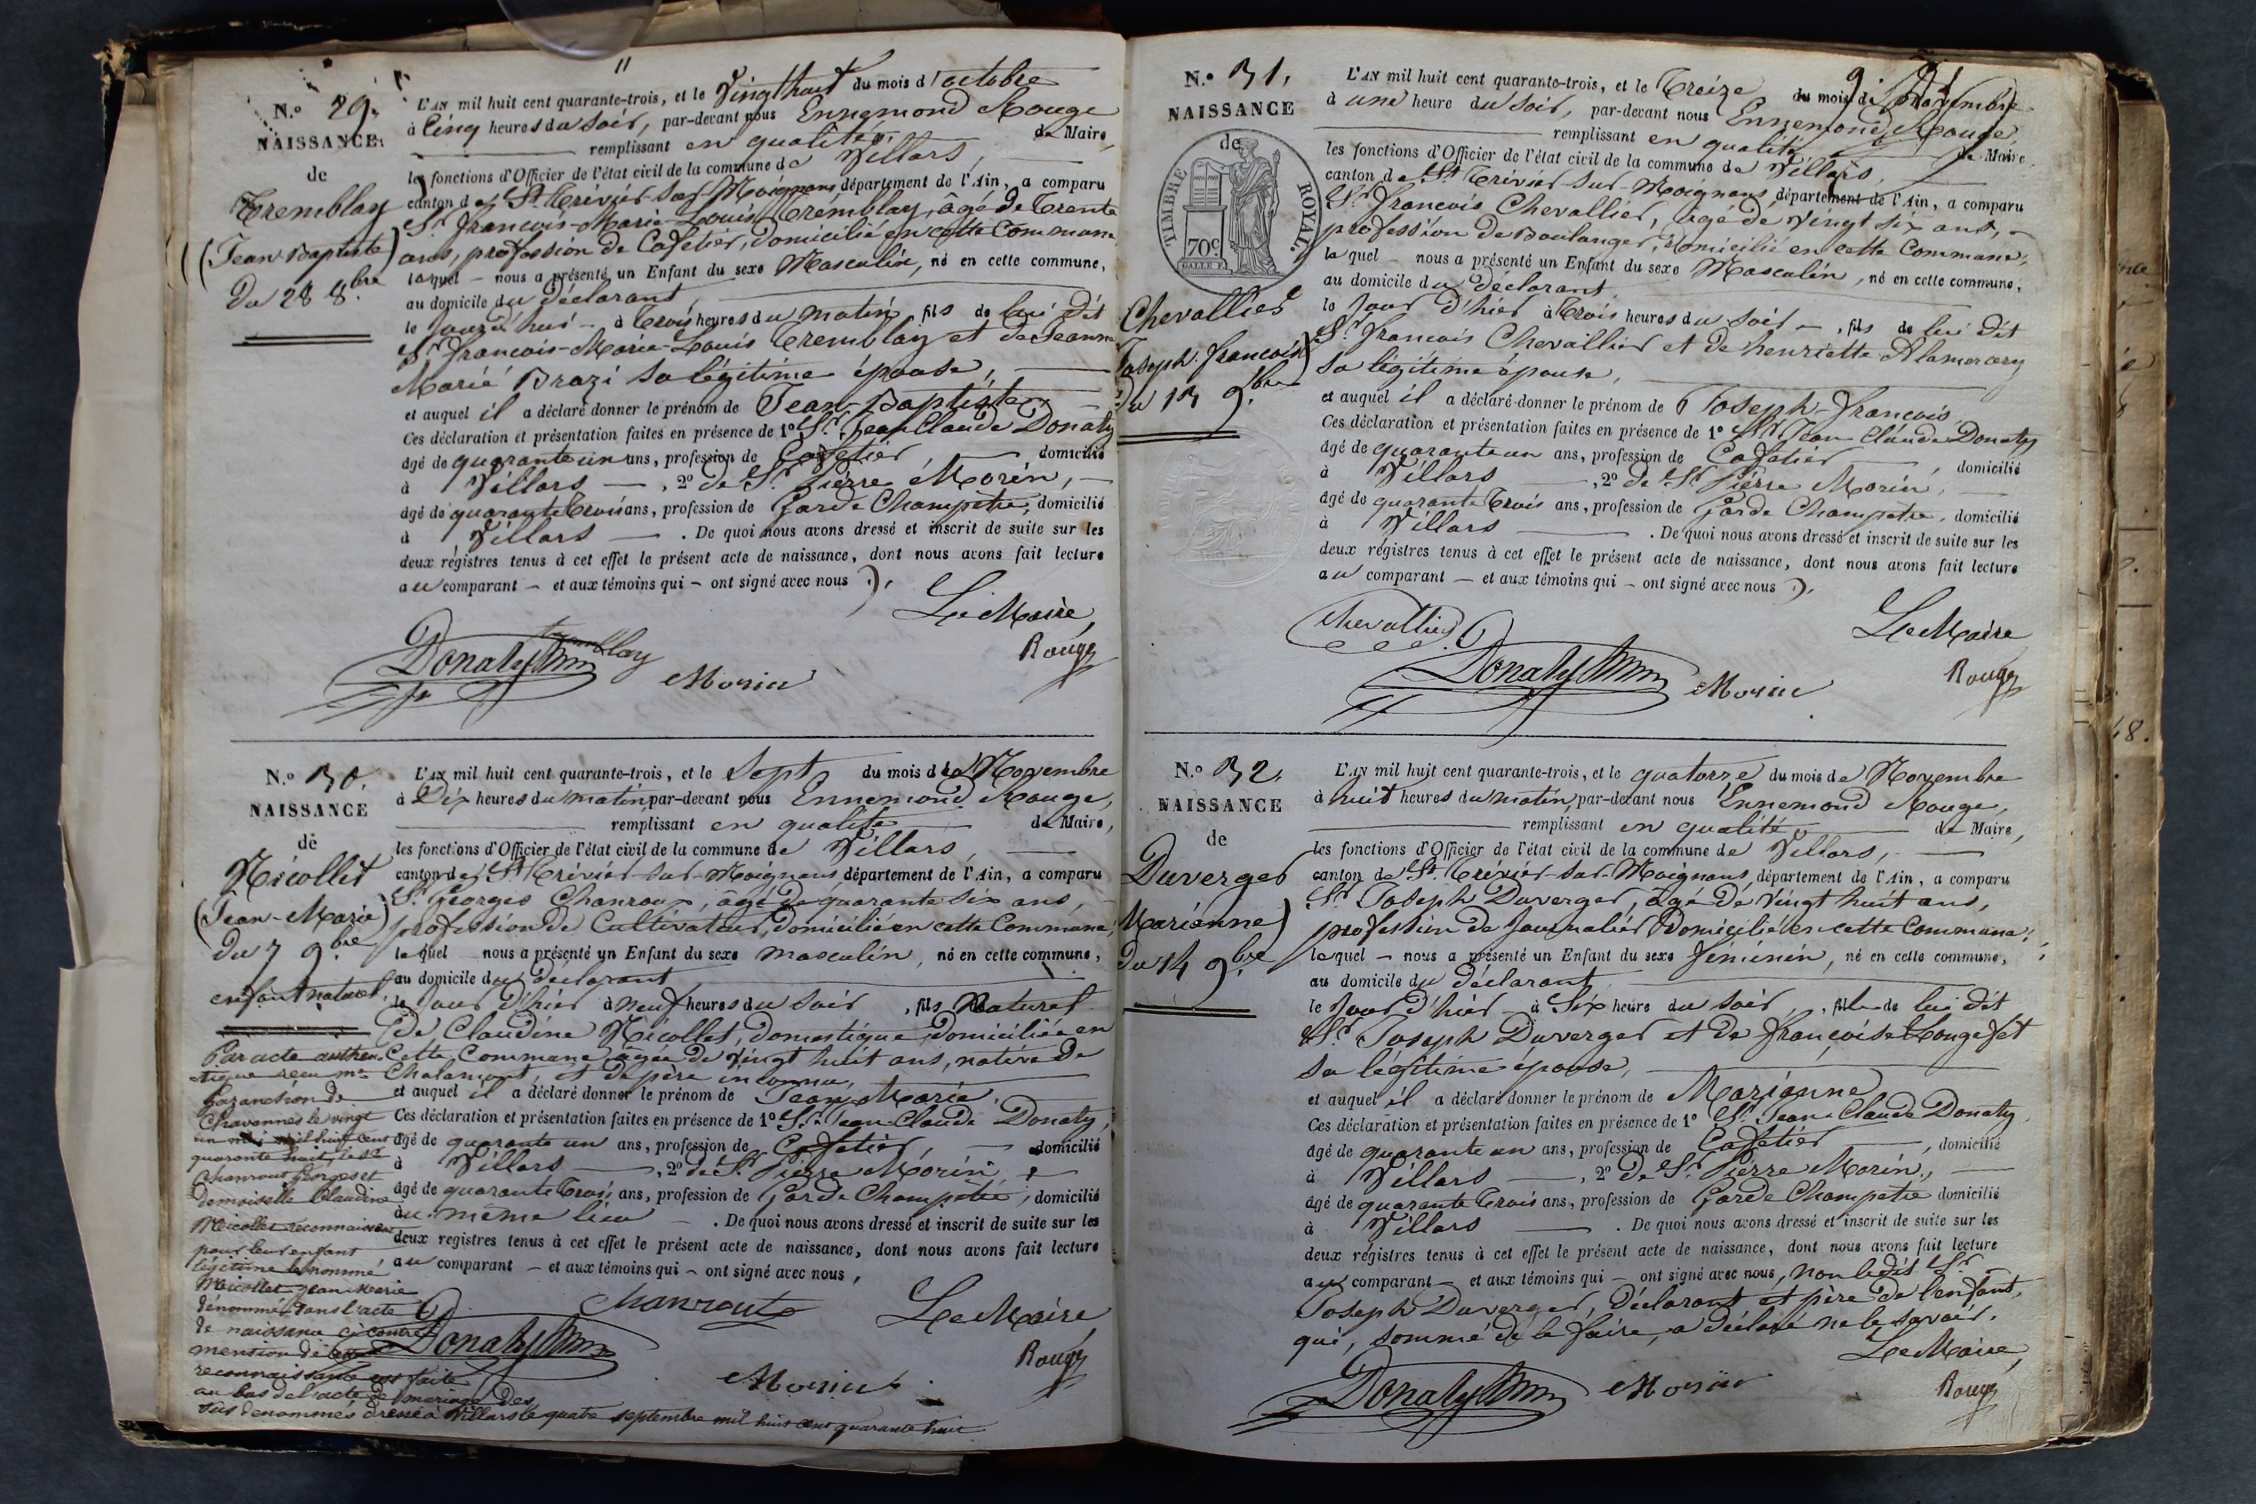 N.° 29.
NAISSANCE
de
Tremblay
(Jean Baptiste)
Du 28 8.bre
L'AN mil huit cent quarante-trois, et le Vingt huit du mois d'octobre
à Cinq heures du soir, par-devant nous Ennemond Rouge
remplissant en qualité de Maire,
les fonctions d'Officier de l'état civil de la commune de Villars,
canton de St. Trévier-sur-Moignans, département de l'Ain, a comparu
Sr. François-Marie-Louis Tremblay, âgé de Trente
ans, profession de Cafetier, domicilié en cette Commune
laquel nous a présenté un Enfant du sexe Masculin, né en cette commune,
au domicile du déclarant,
le jourd'hui à Trois heures du matin, fils de lui dit
Sr. François-Marie-Louis Tremblay et de Jeanne
Marie Brazi sa légitime épouse,
et auquel il a déclaré donner le prénom de Jean-Baptiste.
Ces déclaration et présentation faites en présence de 1° Sr. Jean Claude Donaty
âgé de quarante un ans, profession de Cafetier, domicilié
à Villars, 2° de Sr. Pierre Morin,
âgé de quarante trois ans, profession de Garde Champêtre, domicilié
à Villars. De quoi nous avons dressé et inscrit de suite sur les
deux régistres tenus à cet effet le présent acte de naissance, dont nous avons fait lecture
au comparant et aux témoins qui ont signé avec nous.
Le Maire,
Tremblay
Donaty
Morin
Rouge
N.° 30.
NAISSANCE
de
Nicollet
(Jean-Marie)
du 7 9.bre
enfant naturel.
L'AN mil huit cent quarante-trois, et le Sept du mois de Novembre
à Dix heures du matin, par-devant nous Ennemond Rouge,
remplissant en qualité de Maire,
les fonctions d'Officier de l'état civil de la commune de Villars,
canton de St. Trévier-sur-Moignans département de l'Ain, a comparu
Sr. Georges Chanroux, âgé de quarante six ans,
profession de Cultivateur, domicilié en cette Commune,
lequel nous a présenté un Enfant du sexe masculin, né en cette commune,
au domicile du déclarant
le jour d'hier à neuf heures du soir, fils Naturel
de Claudine Nicollet, domestique, domiciliée en
cette Commune, âgée de vingt huit ans, native de
Chalamont, et de père inconnu,
et auquel il a déclaré donner le prénom de Jean Marie.
Ces déclaration et présentation faites en présence de 1° Sr. Jean Claude Donaty,
âgé de quarante un ans, profession de Cafetier, domicilié
à Villars, 2° de Sr. Pierre Morin,
âgé de quarante trois ans, profession de Garde Champêtre, domicilié
au même lieu. De quoi nous avons dressé et inscrit de suite sur les
deux régistres tenus à cet effet le présent acte de naissance, dont nous avons fait lecture
au comparant et aux témoins qui ont signé avec nous,
Par acte authen-
tique reçu me
de
Chavannes le vingt
un mai mil huit cent
quarante huit, le Sr
Chanroux Georges et
Demoiselle Claudine
Nicollet reconnaissent
pour leur enfant
légitime le nommé
Nicollet Jean Marie
dénommé dans l'acte
de naissance ci contre
mention de cette
reconnaissance est faite
au bas de l'acte de mariage des
sus dénommés dressé à Villars le quatre septembre mil huit cent quarante huit
Chanroux
Le Maire,
Donaty
Morin
Rouge
N.° 31.
NAISSANCE
de
TIMBRE ROYAL
70c.
Chevallier
Joseph françois)
du 13 9.bre
L'AN mil huit cent quarante-trois, et le Treize du mois de Novembre
à une heure du soir, par-devant nous Ennemond Rouge
remplissant en qualité de Maire
les fonctions d'Officier de l'état civil de la commune de Villars,
canton de St. Trévier-sur-Moignans, département de l'Ain, a comparu
Sr. François Chevallier, âgé de vingt six ans,
profession de Boulanger, domicilié en cette Commune,
lequel nous a présenté un Enfant du sexe Masculin, né en cette commune,
au domicile du déclarant
le jour d'hier à Trois heures du soir, fils de lui dit
Sr. François Chevallier et de henriette Alamercery
sa légitime épouse,
et auquel il a déclaré donner le prénom de Joseph-françois.
Ces déclaration et présentation faites en présence de 1° Sr. Jean Claude Donaty
âgé de quarante un ans, profession de Cafetier, domicilié
à Villars, 2° de Sr. Pierre Morin,
âgé de quarante trois ans, profession de Garde Champêtre, domicilié
à Villars. De quoi nous avons dressé et inscrit de suite sur les
deux régistres tenus à cet effet le présent acte de naissance, dont nous avons fait lecture
au comparant et aux témoins qui ont signé avec nous.
Chevallier
Le Maire
Donaty
Morin
Rouge
N.° 32.
NAISSANCE
de
Duverger
Marianne)
du 14 9.bre
L'AN mil huit cent quarante-trois, et le quatorze du mois de Novembre
à huit heures du matin, par-devant nous Ennemond Rouge,
remplissant en qualité de Maire,
les fonctions d'Officier de l'état civil de la commune de Villars,
canton de St. Trévier-sur-Moignans, département de l'Ain, a comparu
Sr. Joseph Duverger, âgé de vingt huit ans,
profession de Journalier domicilié en cette Commune,
lequel nous a présenté un Enfant du sexe féminin, né en cette commune,
au domicile du déclarant
le jour d'hier à Six heure du soir, fille de lui dit
Sr. Joseph Duverger et de françoise Rougefet
sa légitime épouse,
et auquel il a déclaré donner le prénom de Marianne
Ces déclaration et présentation faites en présence de 1° Sr. Jean Claude Donaty,
âgé de quarante un ans, profession de Cafetier, domicilié
à Villars, 2° de Sr. Pierre Morin,
âgé de quarante trois ans, profession de Garde Champêtre domicilié
à Villars. De quoi nous avons dressé et inscrit de suite sur les
deux régistres tenus à cet effet le présent acte de naissance, dont nous avons fait lecture
aux comparant et aux témoins qui ont signé avec nous, non ledit Sr.
Joseph Duverger, déclarant et père de l'enfant,
qui, sommé de le faire, a déclaré ne le savoir.
Le Maire,
Donaty
Morin
Rouge